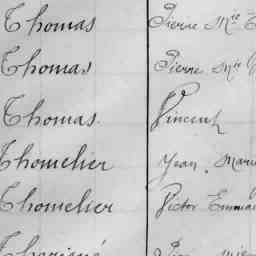 Thomas Pierre Mie
Thomas Pierre Mie
Thomas Vincent
Thomelier Jean Marie
Thomelier Victor Emman